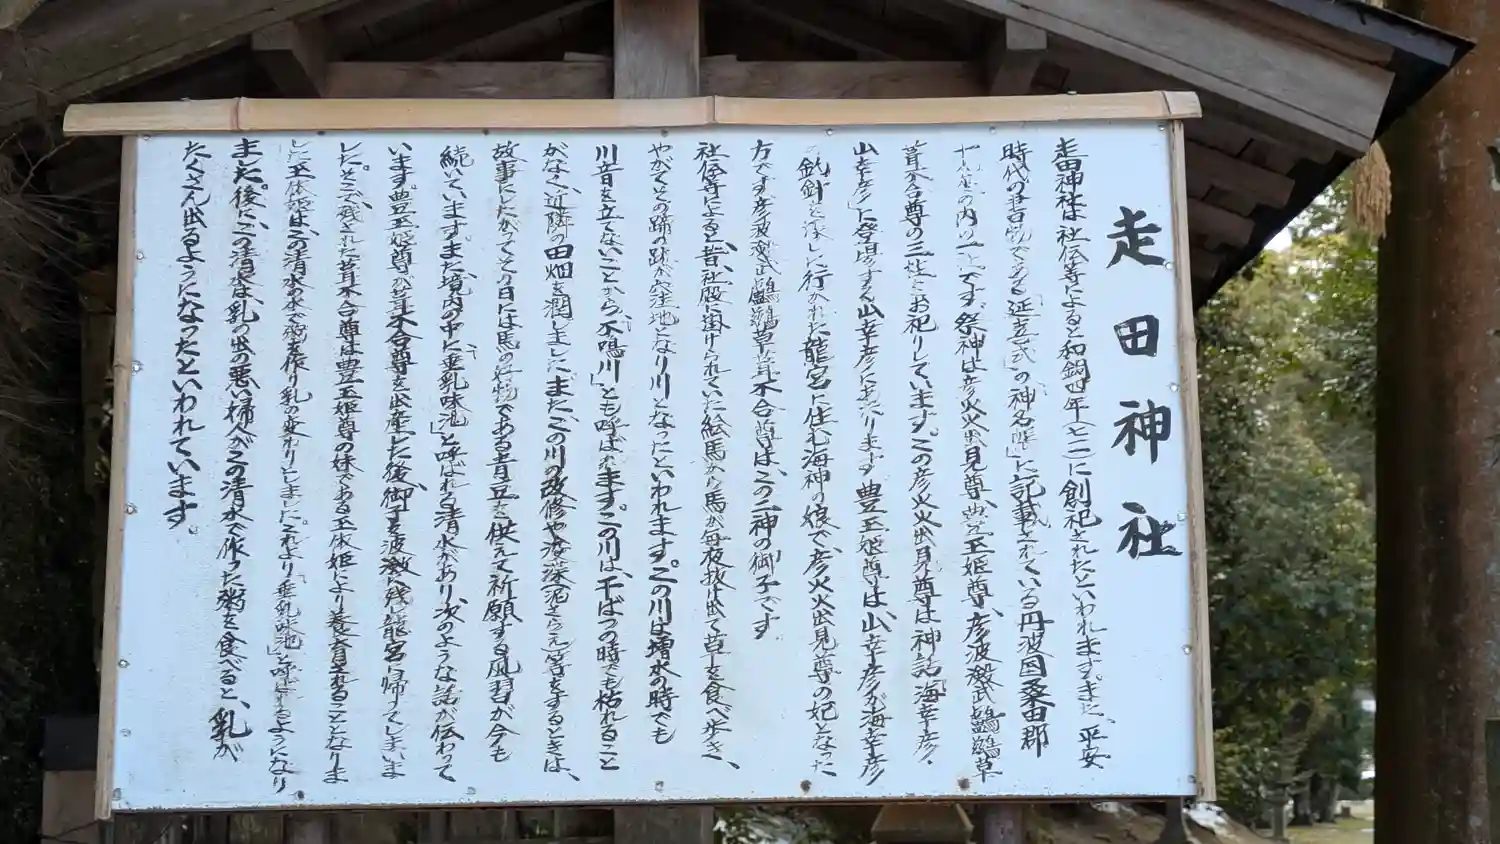 走田神社
走田神社は社伝等によると和銅四年(七一一)に創祀されたといわれます。また、平安
時代の書物である「延喜式」の「神名帳」に記載されている丹波国桑田郡
十九座の内の一座です。祭神は彦火火出見尊、豊玉姫尊、彦波瀲武鸕鷀草
葺不合尊の三柱をお祀りしています。この彦火火出見尊は神話「海幸彦・
山幸彦」に登場する山幸彦にあたります。豊玉姫尊は、山幸彦が海幸彦
の釣針を探しに行かれた龍宮に住む海神の娘で、彦火火出見尊の妃となった
方です。彦波瀲武鸕鷀草葺不合尊は、この二神の御子です。
社伝等によると、昔、社殿に掛けられていた絵馬から馬が毎夜抜け出て草を食べ歩き、
やがてその蹄の跡が窪地となり川となったといわれます。この川は増水の時でも
川音を立てないことから、「不鳴川」とも呼ばれます。この川は、干ばつの時でも枯れること
がなく、近隣の田畑を潤しました。また、この川の改修や浚渫(泥さらえ)等をするときは、
故事にしたがってその日には馬の好物である青豆を供えて祈願する風習が今も
続いています。また、境内の中に「垂乳味池」と呼ばれる清水があり、次のような話が伝わって
います。豊玉姫尊が葺不合尊を出産した後、御子を波激に残し龍宮に帰ってしまいま
した。そこで、残された葺不合尊は豊玉姫尊の妹である玉依姫により養育されることとなりま
した。玉依姫は、この清水の水で粥を作り乳の変わりとしました。これより「垂乳味池」と呼ばれるようになり
ました。後に、この清水は、乳の出の悪い婦人がこの清水で作った粥を食べると、乳が
たくさん出るようになったといわれています。